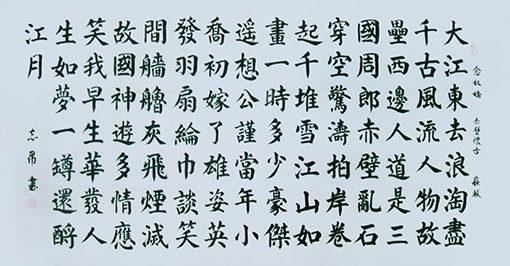 念奴嬌 赤壁懷古 蘇軾
大江東去浪淘盡
千古風流人物故
壘西邊人道是三
國周郎赤壁亂石
穿空驚濤拍岸卷
起千堆雪江山如
畫一時多少豪傑
遙想公謹當年小
喬初嫁了雄姿英
發羽扇綸巾談笑
間艢艣灰飛煙滅
故國神遊多情應
笑我早生華發人
生如夢一罇還酹
江月